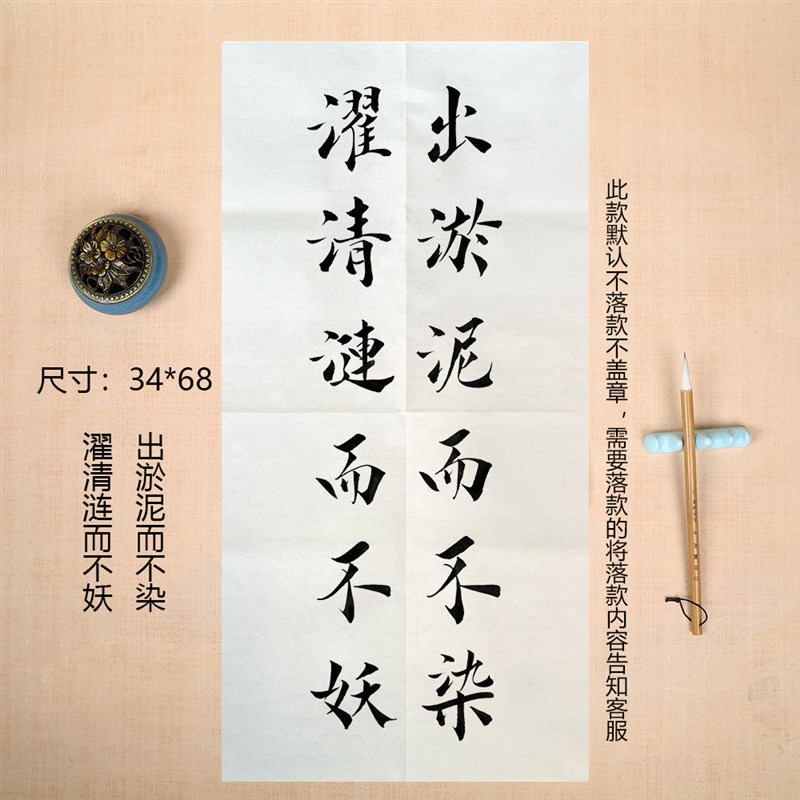 出淤泥而不染
濯清漣而不妖
此款默认不落款不盖章，需要落款的将落款内容告知客服
尺寸：34*68
出淤泥而不染
濯清涟而不妖